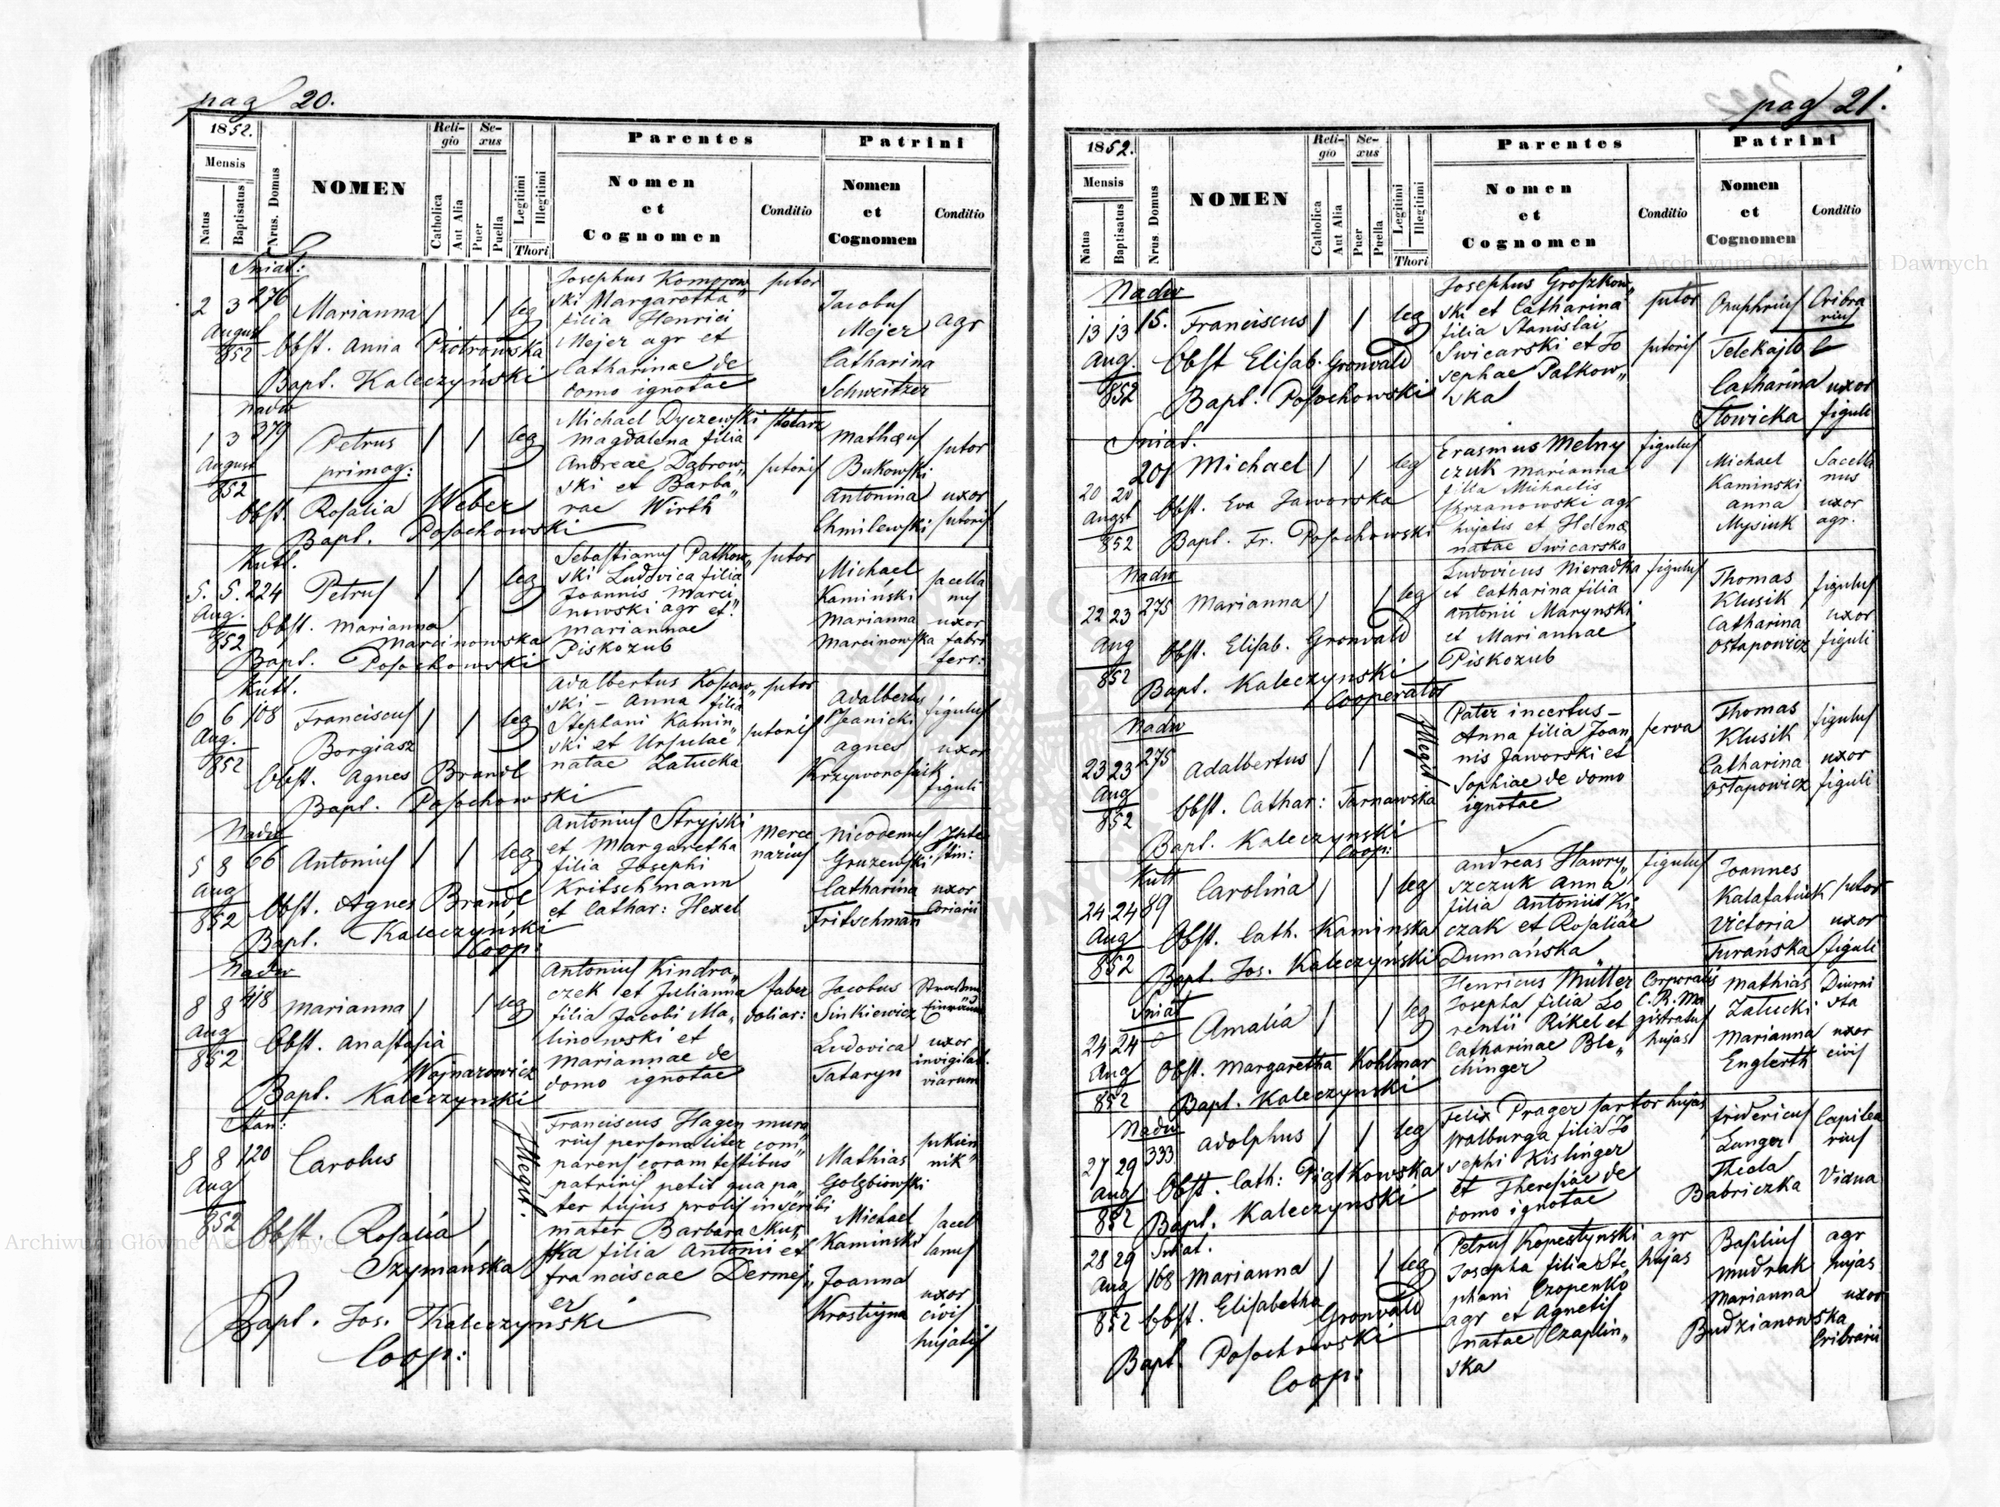 pag 20.
1852.
Mensis
Natus
Baptisatus
Nrus. Domus
NOMEN
Reli-
gio
Catholica
Aut Alia
Se-
xus
Puer
Puella
Legitimi
Illegitimi
Thori
Parentes
Nomen
et
Cognomen
Conditio
Patrini
Nomen
et
Cognomen
Conditio
Sniat:
2 3 276 Marianna / / leg
August
852
Obst. Anna Piotrowska
Bapt. Kaleczyński
Josephus Komorow„
ski Margaretha
filia Henrici
Mejer agr et
Catharinae de
domo ignotae
sutor
Jacobus
Mejer
Catharina
Schweitzer
agr
Nadw
1 3 379 Petrus / / leg
primog:
August
852
Obst. Rosalia Weber
Bapt. Posochowski
Michael Dyczewski
Magdalena filia
Andreae Dąbrow„
ski et Barba„
rae Wirth
stolarz
sutoris
Mathæus
Bukowski
Antonina
Chmilewski
sutor
uxor
sutoris
Kutt.
5. 5. 224 Petrus / / leg
Aug.
852
Obst. Marianna
Marcinowska
Bapt. Posochowski
Sebastianus Patkow„
ski Ludovica filia
Joannis Marci„
nowski agr et
Mariannae
Piskozub
sutor
Michael
Kamiński
Marianna
Marcinowska
sacella
nus
uxor
fabri
ferr:
Kutt.
6 6 108 Franciscus / / leg
Borgiasz
Aug.
852
Obst. Agnes Brandl
Bapt. Posochowski
Adalbertus Kossow„
ski – Anna filia
Stephani Kamin„
ski et Ursulae
natae Zatucka
sutor
sutoris
Adalbertus
Jeanicki
Agnes
Krzywonosiuk
figulus
uxor
figuli
Nadw
5 8 66 Antonius / / leg
Aug
852
Obst. Agnes Brandl
Bapt. Kaleczyński
Coop:
Antonius Stryjski
et Margaretha
filia Josephi
Kritschmann
et Cathar: Hexel
Merce
narius
Nicodemus
Gruzewski
Catharina
Fritschman
uxor
Coriarii
Nadw
8 8 418 Marianna / / leg
Aug
852
Obst. Anastasia
Wojnarowicz
Bapt. Kaleczynski
Antonius Kindra„
czek et Julianna
filia Jacobi Ma„
linowski et
Mariannae de
domo ignotae
faber
doliar:
Jacobus
Sinkiewicz
Ludovica
Tataryn
uxor
invigilat.
viarum
Stan:
8 8 120 Carolus
Illegit.
Aug
852
Obst. Rosalia
Szymańska
Bapt. Jos. Kaleczyński
Coop:
Franciscus Hagen mura
rius personaliter com„
parens coram testibus
patrinis petit qua pa„
ter hujus prolis inscribi
mater Barbara Skus„
filia Antonii et
franciscae Dermej„
er
Mathias
Gołębiowski
Michael
Kaminski
Joanna
Krostigna
sukien
nik
sacel
lanus
uxor
civis
hujatis
pag 21.
1852.
Mensis
Natua
Baptisatus
Nrus. Domus
NOMEN
Reli-
gio
Catholica
Aut Alia
Se-
xus
Puer
Puella
Legitimi
Illegitimi
Thori
Parentes
Nomen
et
Cognomen
Conditio
Patrini
Nomen
et
Cognomen
Conditio
Nadw
13 13 15. Franciscus / / leg
Aug.
852
Obst Elisab. Gronvald
Bapt. Posochowski
Josephus Groszkow„
ski et Catharina
filia Stanislai
Swicarski et Jo
sephae Patkow„
ska
sutor
sutoris
Onuphrius
Telekajlo
Catharina
Słowicka
Cribra
rius
uxor
figuli
Sniat.
20 20 201 Michael / / leg
Augst
852
Obst. Eva Jaworska
Bapt. Fr. Posochowski
Erasmus Melny
czuk Marianna
filia Michaelis
Skrzanowski agr
hujatis et Helenæ
natae Swicarska
figulus
Michael
Kaminski
Anna
Mysiuk
Sacella
nus
uxor
agr.
Nadw
22 23 275 Marianna / / leg
Aug
852
Obst. Elisab. Gronvald
Bapt. Kaleczynski
Cooperator
Ludovicus Nieradka
et Catharina filia
Antonii Marynski
et Mariannae
Piskozub
figulus
Thomas
Klusik
Catharina
Ostapowicz
figulus
uxor
figuli
Nadw
23 23 275 Adalbertus / /
Illegit
Aug
852
Obst. Cathar: Tarnawska
Bapt. Kaleczynski
Coop:
Pater incertus –
Anna filia Joan„
nis Jaworski et
Sophiae de domo
ignotae
serva
Thomas
Klusik
Catharina
Ostapowicz
figulus
uxor
figuli
Kutt
24 24 89 Carolina / / leg
Aug
852
Obst. Cath. Kaminska
Bapt. Jos. Kaleczyński
Andreas Hawry„
szczuk Anna
filia Antonius Ki„
czak et Rosaliae
Dumańska
figulus
Joannes
Kalafatiuk
Victoria
Turańska
sutor
uxor
figuli
Sniat
24 24 Amalia / / leg
Aug
852
Obst. Margaretha Kohlmar
Bapt. Kaleczynski
Henricus Müller
Josepha filia Lo
rentii Rikel et
Catharinae Ble„
chinger
Corporalis
C. R. Ma
gistratus
hujas
Mathias
Zatucki
Marianna
Englerth
Diurni
sta
uxor
civis
Nadw
27 29 333 Adolphus / / leg
Aug
852
Obst. Cath: Piątkowska
Bapt. Kaleczynski
Felix Prager sartor hujas
Walburga filia Jo
sephi Kislinger
et Theresiae de
domo ignotae
fridericus
Langer
Thecla
Babriczka
Capilea
rius
Vidua
Sniat.
28 29 168 Marianna / / leg
Aug
852
Obst. Elisabetha
Gronvald
Bapt. Posochowski
Coop:
Petrus Kopestynski
Josepha filia Ste
phani Czopenko
agr et Agnetis
natae Czaplin„
ska
agr
hujas
Basilius
Mudrak
Marianna
Budzianowska
agr
hujas
uxor
Cribrarii
Archiwum Główne Akt Dawnych
Archiwum Główne Akt Dawnych